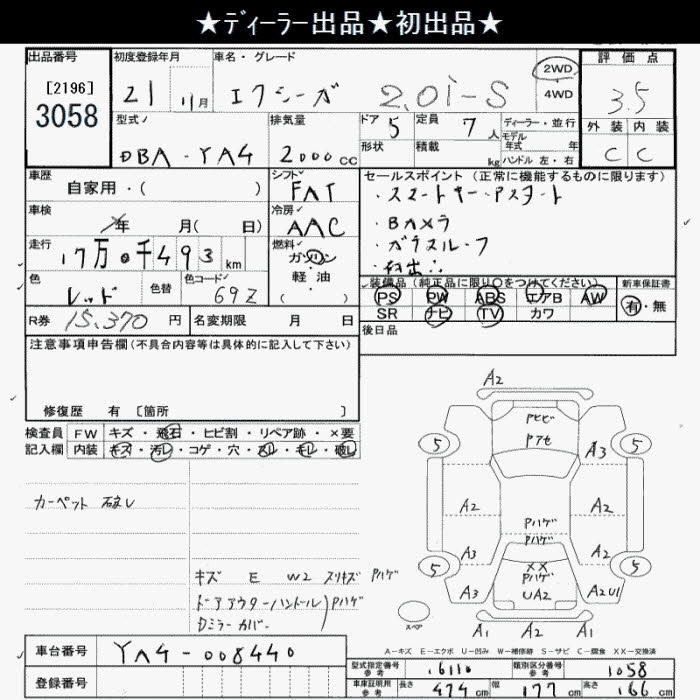 ★ディーラー出品★初出品★
出品番号 初度登録年月 車名・グレード 評価点
[2196]
3058
21 11月 エクシーガ 2.0i-S 2WD 4WD 3.5
型式 排気量 ドア 5 定員 7人 ディーラー・並行 外装 内装
DBA-YA4 2000cc 形状 積載 kg モデル年式 年 ハンドル 左・右 C C
車歴 シフト セールスポイント (正常に機能するものに限ります)
自家用・( ) FAT ・スマートキー・Pスタート
車検 年 月( 日) 冷房 AAC ・Bカメラ
走行 17万0千493km 燃料 ガソリン・軽油・( ) ・ガラスルーフ
色 レッド 色替 色コード 69Z ・初出
装備品 (純正品に限り○をつけてください) 新車保証書
PS PW ABS エアB AW 有・無
R券 15,370円 名変期限 月 日 SR ナビ TV カワ
注意事項申告欄(不具合内容等は具体的に記入して下さい) 後日品
修復歴 有 [箇所 ]
検査員 FW キズ・飛石・ヒビ割・リペア跡・×要
記入欄 内装 キズ・汚レ・コゲ・穴・スレ・キレ・破レ
カーペット 破レ
キズ E W2 スリキズ Pハゲ
ドアアウターハンドル) Pハゲ
Dミラーカバー
A2
Pヒビ
Pアセ
5 5
A3
A2 A2
Pハゲ
Pハゲ
A3 A2
XX
5 Pハゲ 5
A3 UA2 A2U1
スペア A1 A2 A1
A-キズ E-エクボ U-凹み W-補修跡 S-サビ C-腐食 XX-交換済
車台番号 YA4-008440
型式指定番号 参考 16110 類別区分番号 参考 1058
登録番号
車庫証明用 参考 長さ 474cm 幅 177cm 高さ 66cm